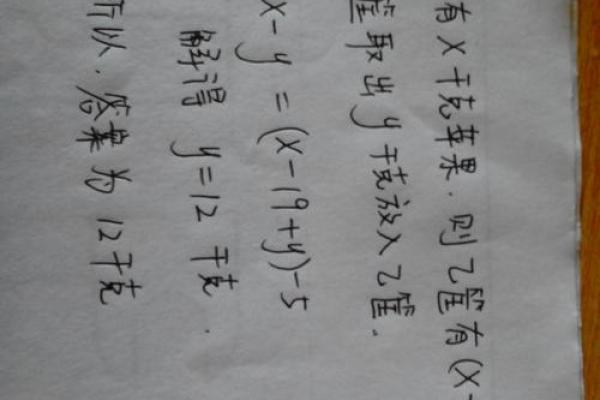 有x千克苹果.则乙筐有(x-
筐取出y千克放入乙筐.
x-y=(x-19+y)-5
解得 y=12 千克.
所以.答案为 12千克